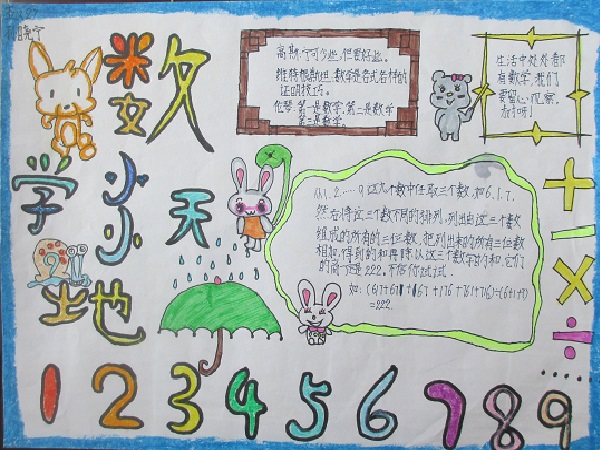 数学小天地
高斯:宁可少些,但要好些。
维特根斯坦:数学是各式各样的
证明技巧。
伦琴:第一是数学,第二是数学
第三是数学。
生活中处处都
有数学,我们
要留心观察,
去
从1、2、……9,这九个数中任取三个数,如6、1、7,
然后将这三个数不同的排列,列出由这三个数
组成的所有的三位数,把列出来的所有三位数
相加,得到的和再除以这三个数字的和,它们
的商一定是222。不信你试试。
如:(617+671+167+176+761+716)÷(6+1+7)
=222
+
-
×
÷
1 2 3 4 5 6 7 8 9